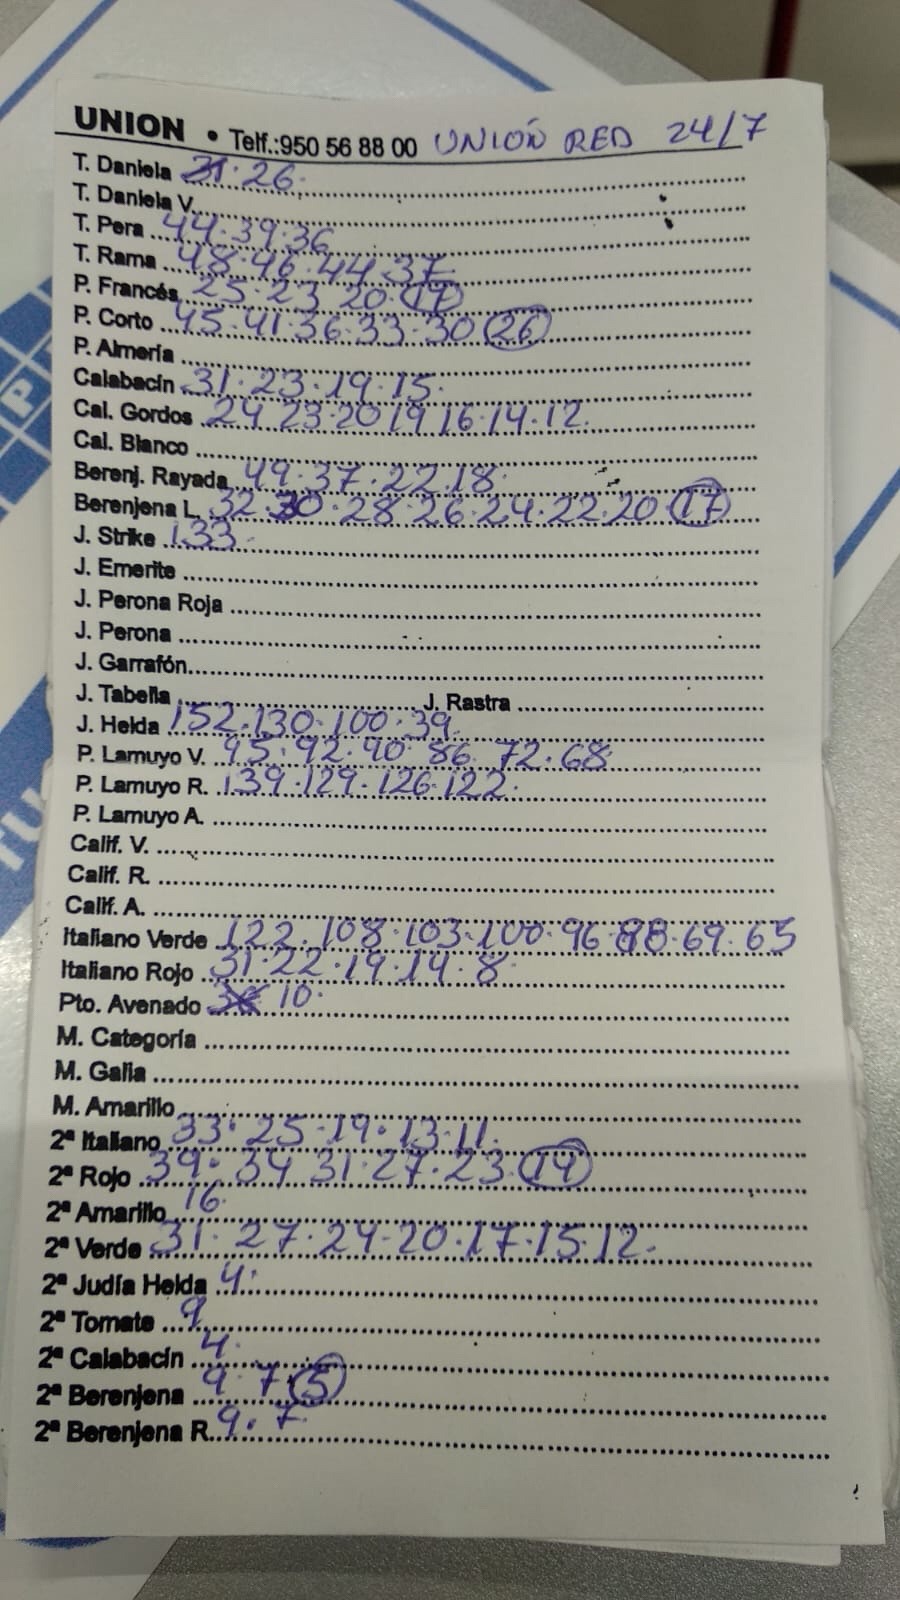 UNION • Telf.:950 56 88 00 UNIÓN RED 24/7
T. Daniela 31. 26.
T. Daniela V.
T. Pera 44. 39. 36
T. Rama 48. 46. 44. 37
P. Francés 25. 23 20. 17
P. Corto 45. 41. 36. 33. 30 26
P. Almería
Calabacín 31. 23. 19. 15.
Cal. Gordos 24 23. 20 19 16. 14. 12.
Cal. Blanco
Berenj. Rayada 49. 37. 22. 18.
Berenjena L. 32 30. 28. 26. 24. 22. 20. 17
J. Strike 133.
J. Emerite
J. Perona Roja
J. Perona
J. Garrafón
J. Tabella J. Rastra
J. Helda 152. 130. 100. 39.
P. Lamuyo V. 95. 92. 90. 86. 72. 68
P. Lamuyo R. 139. 129. 126. 122.
P. Lamuyo A.
Calif. V.
Calif. R.
Calif. A.
Italiano Verde 122. 108. 103. 100. 96. 88. 69. 65
Italiano Rojo 31. 22. 19. 14. 8.
Pto. Avenado 10.
M. Categoría
M. Galia
M. Amarillo
2ª Italiano 33. 25. 19. 13. 11.
2ª Rojo 39. 34 31. 27. 23. 14
2ª Amarillo 16.
2ª Verde 31. 27. 24. 20. 17. 15. 12.
2ª Judía Helda 4.
2ª Tomate 9
2ª Calabacín 4.
2ª Berenjena 9. 7. 5
2ª Berenjena R. 9. 7.
TU
P